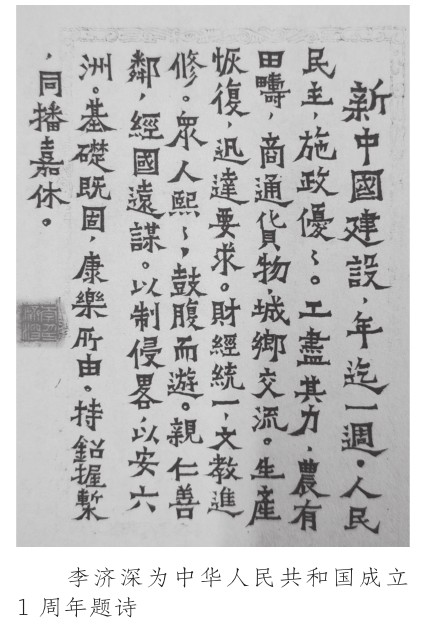 新中國建設，年迄一週。人民
民主，施政優〻。工盡其力，農有
田疇，商通貨物，城鄉交流。生產
恢復，迅達要求。財經統一，文教進
修。眾人熙〻，鼓腹而遊。親仁善
鄰，經國遠謀。以制侵畧，以安六
洲。基礎既固，康樂所由。持鉛握槧
，同播嘉休。
李济深为中华人民共和国成立
1 周年题诗